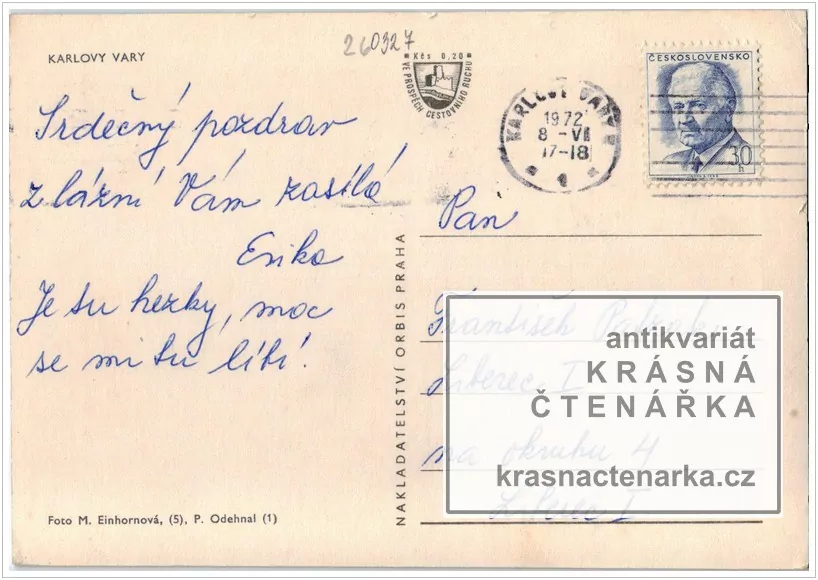 KARLOVY VARY
260327
Kčs 0,20
VE PROSPĚCH CESTOVNÍHO RUCHU
KARLOVY VARY
1972
8 -VI
17-18
ČESKOSLOVENSKO
30 h
Srdečný pozdrav
z lázní Vám zasílá
Erika
Je tu hezky, moc
se mi tu líbí!
Foto M. Einhornová, (5), P. Odehnal (1)
NAKLADATELSTVÍ ORBIS PRAHA
Pan
František
Liberec I
na okruhu 4
Liberec I
antikvariát
KRÁSNÁ
ČTENÁŘKA
krasnactenarka.cz